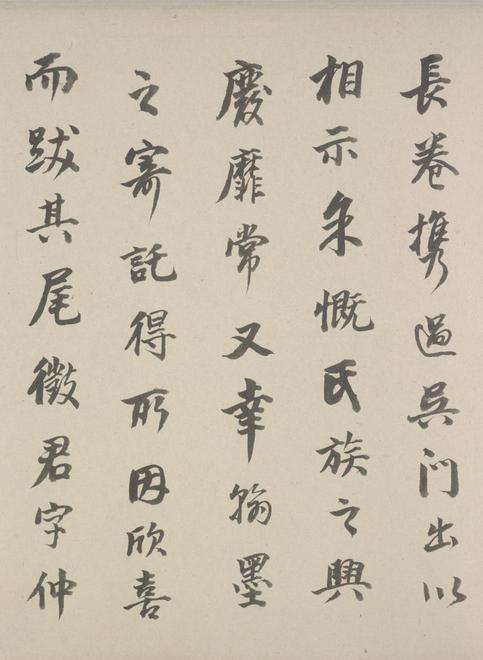 長卷攜過吳門出以
相示余慨氏族之興
廢靡常又幸翰墨
之寄託得所因欣喜
而跋其尾徵君字仲